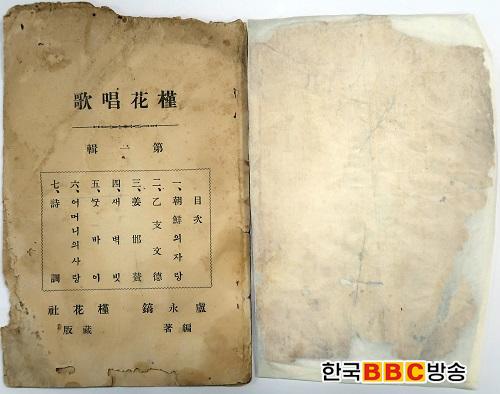 槿花唱歌
第一輯
目次
一、朝鮮의자랑
二、乙支文德
三、姜邯贊
四、새벽빗
五、바이
六、어머니의사랑
七、詩調
盧永鎬 編著
槿花社 藏版
한국BBC방송